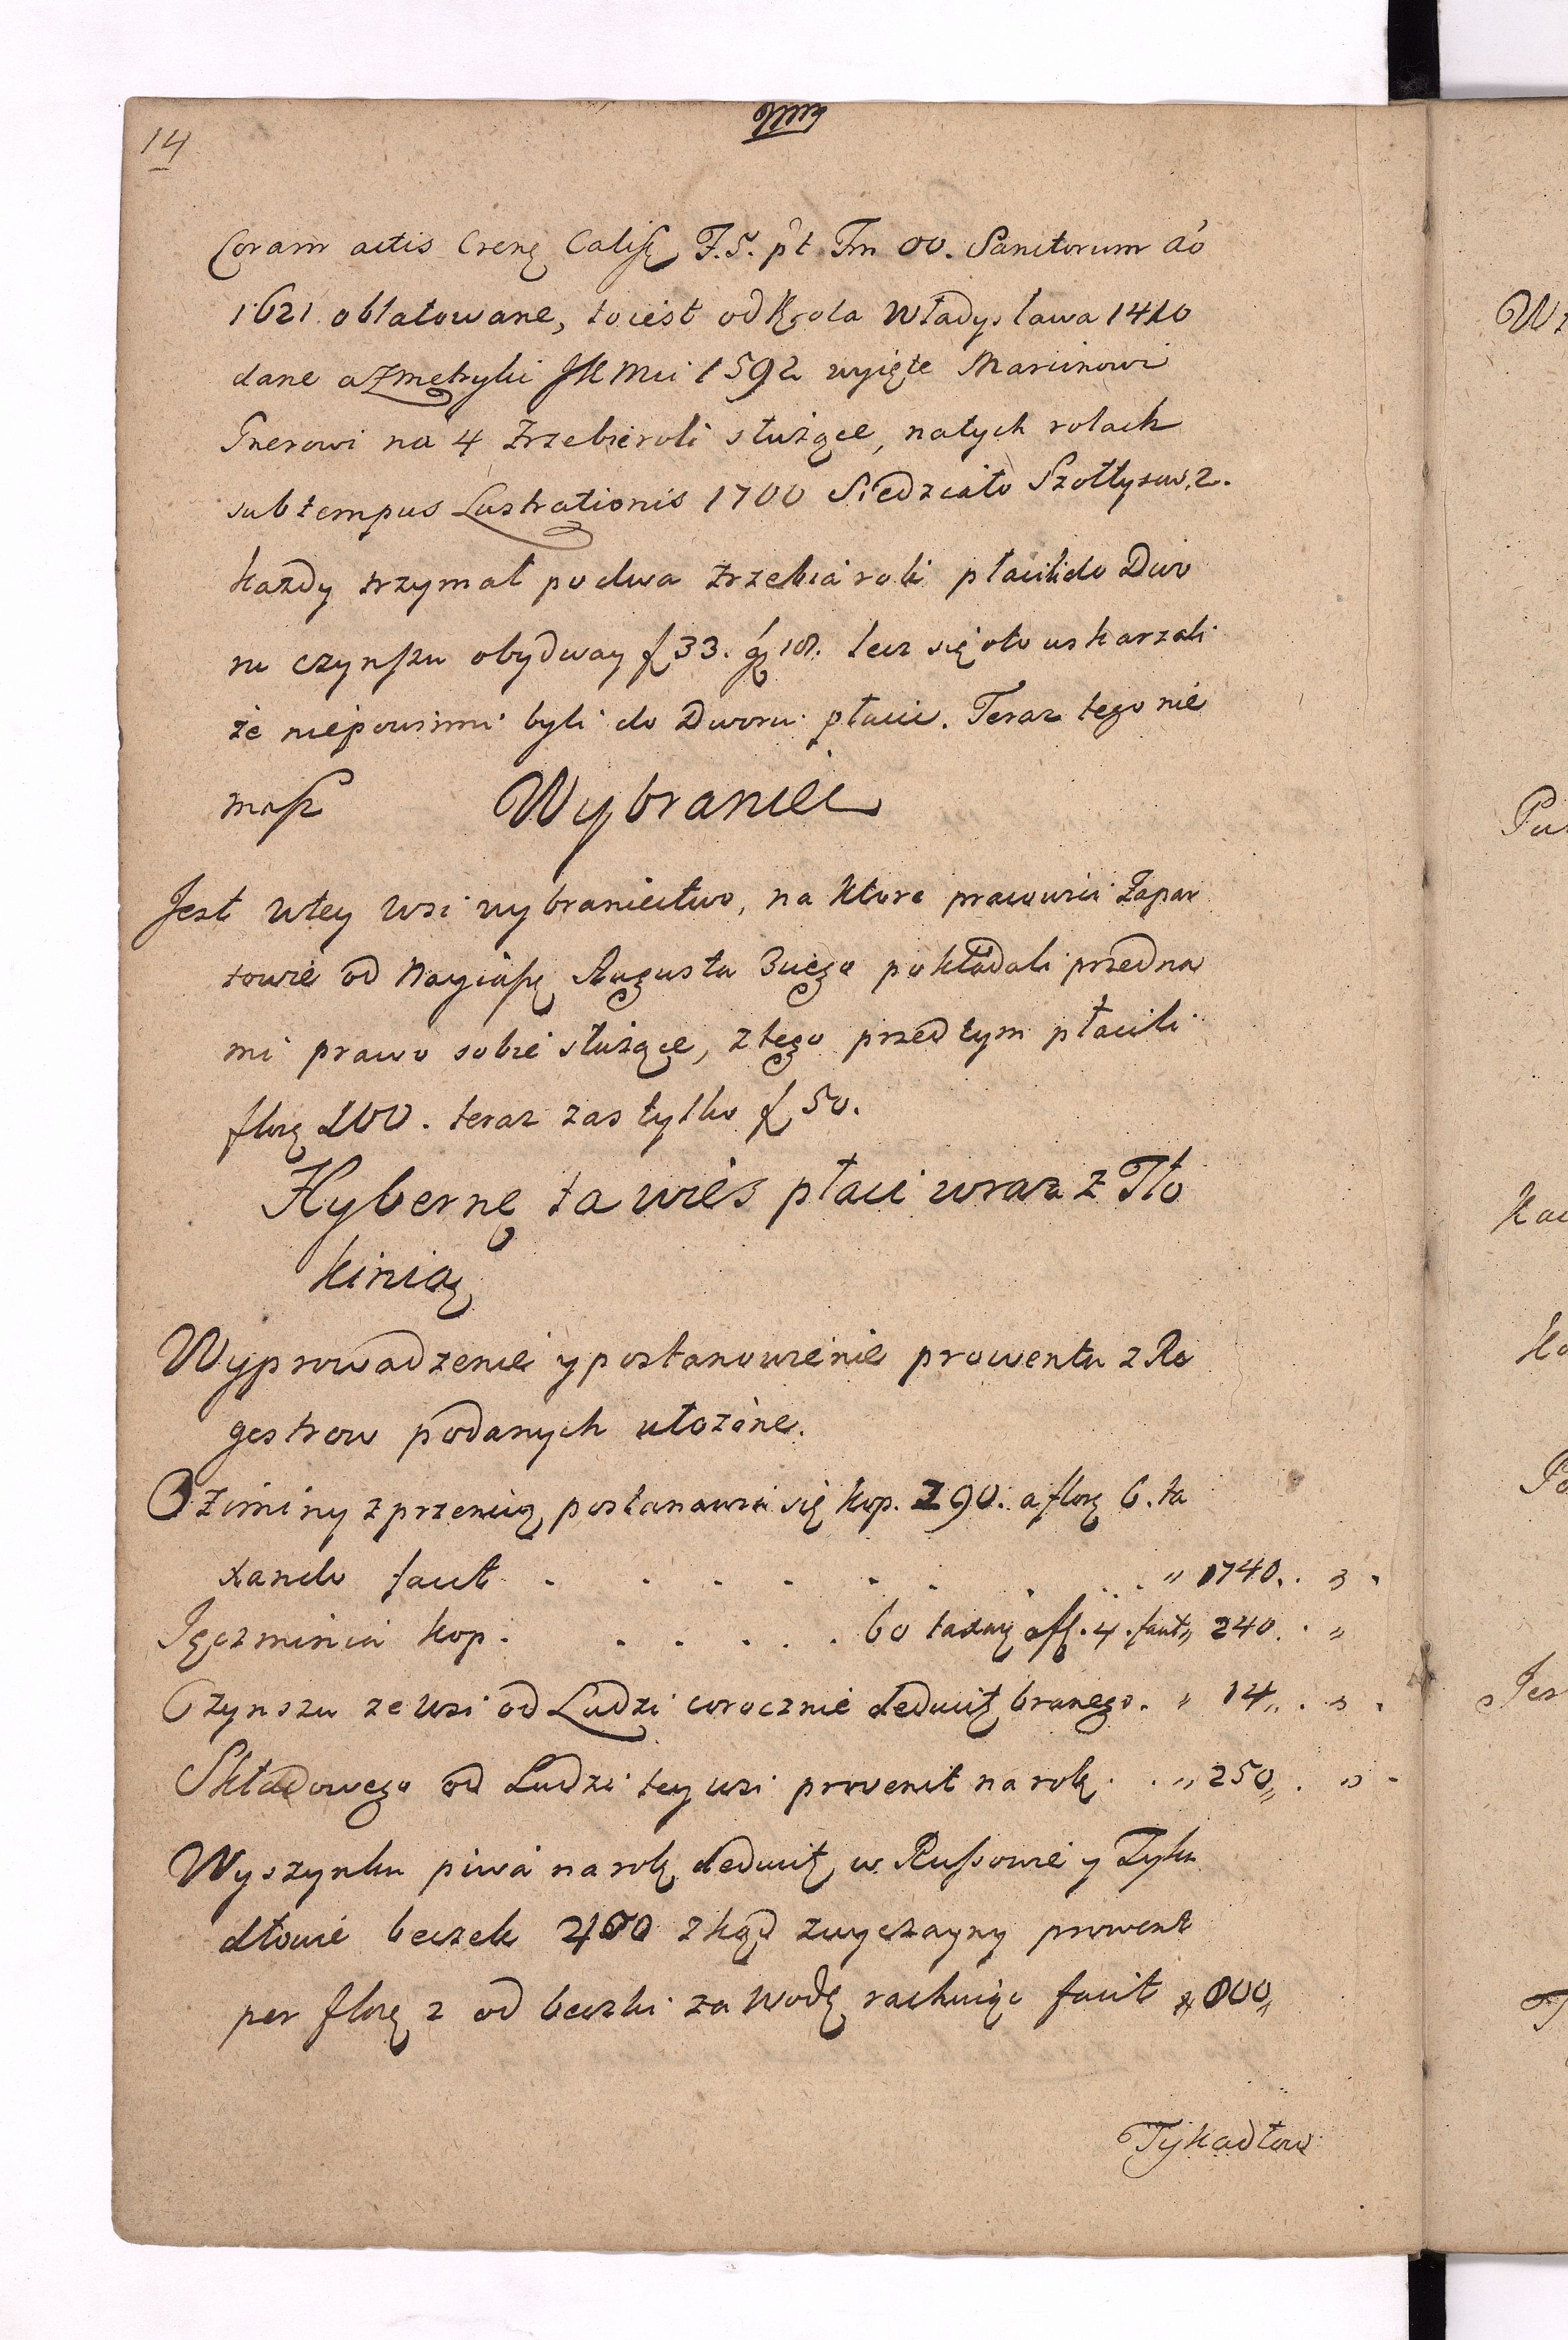 14
Coram actis Crenę Calisę F. 5. p't Fm OO. Sanctorum aō
1621 oblatowane, to iest od Krola Władysława 1410
dane a Zmetryki JKMci 1592 wyięte Marcinowi
Gnerowi na 4 Zrzebie roli służące, na tych rolach
sub tempus Lustrationis 1700 Siedziało Szołtysow 2.
każdy trzymał po dwa żrzebia roli płacili do Dwo
ru czynszu obydway f 33. gr 18. lecz się oto uskarzali
że niepowinni byli do Dworu płacic. Teraz tego nie
masz Wybraniec
Jest wtey wsi wybraniectwo, na ktore pracowici Zapar
towie od Nayiasę Augusta 3ciego pokładali przed na
mi prawo sobie służące, z tego przed tym płacili
florę 100. teraz zas tylko f 50.
Hybernę ta wies płaci wraz z Tło
kinią
Wyprowadzenie y postanowienie prowentu z Re
gestrow podanych ułożone.
Oziminy z przenicą postanawia się kop. 290. a florę 6. ta
xando facit . . . . . . . . . " 1740. . "
Jęczmienia kop. . . . . . 60 taxuię a fl. 4. facit " 240. . "
Czynszu ze wsi od Ludzi corocznie deducitę branego. " 14 " . "
Składowego od Ludzi tey wsi provenit na rok . . " 250 " . "
Wyszynku piwa na rok deducitę w Russowie y Tyka
dłowie beczek 400 zkąd zwyczayny prowent
per florę 2 od beczki za wodę rachuiąc facit " 800 "
Tykadłow